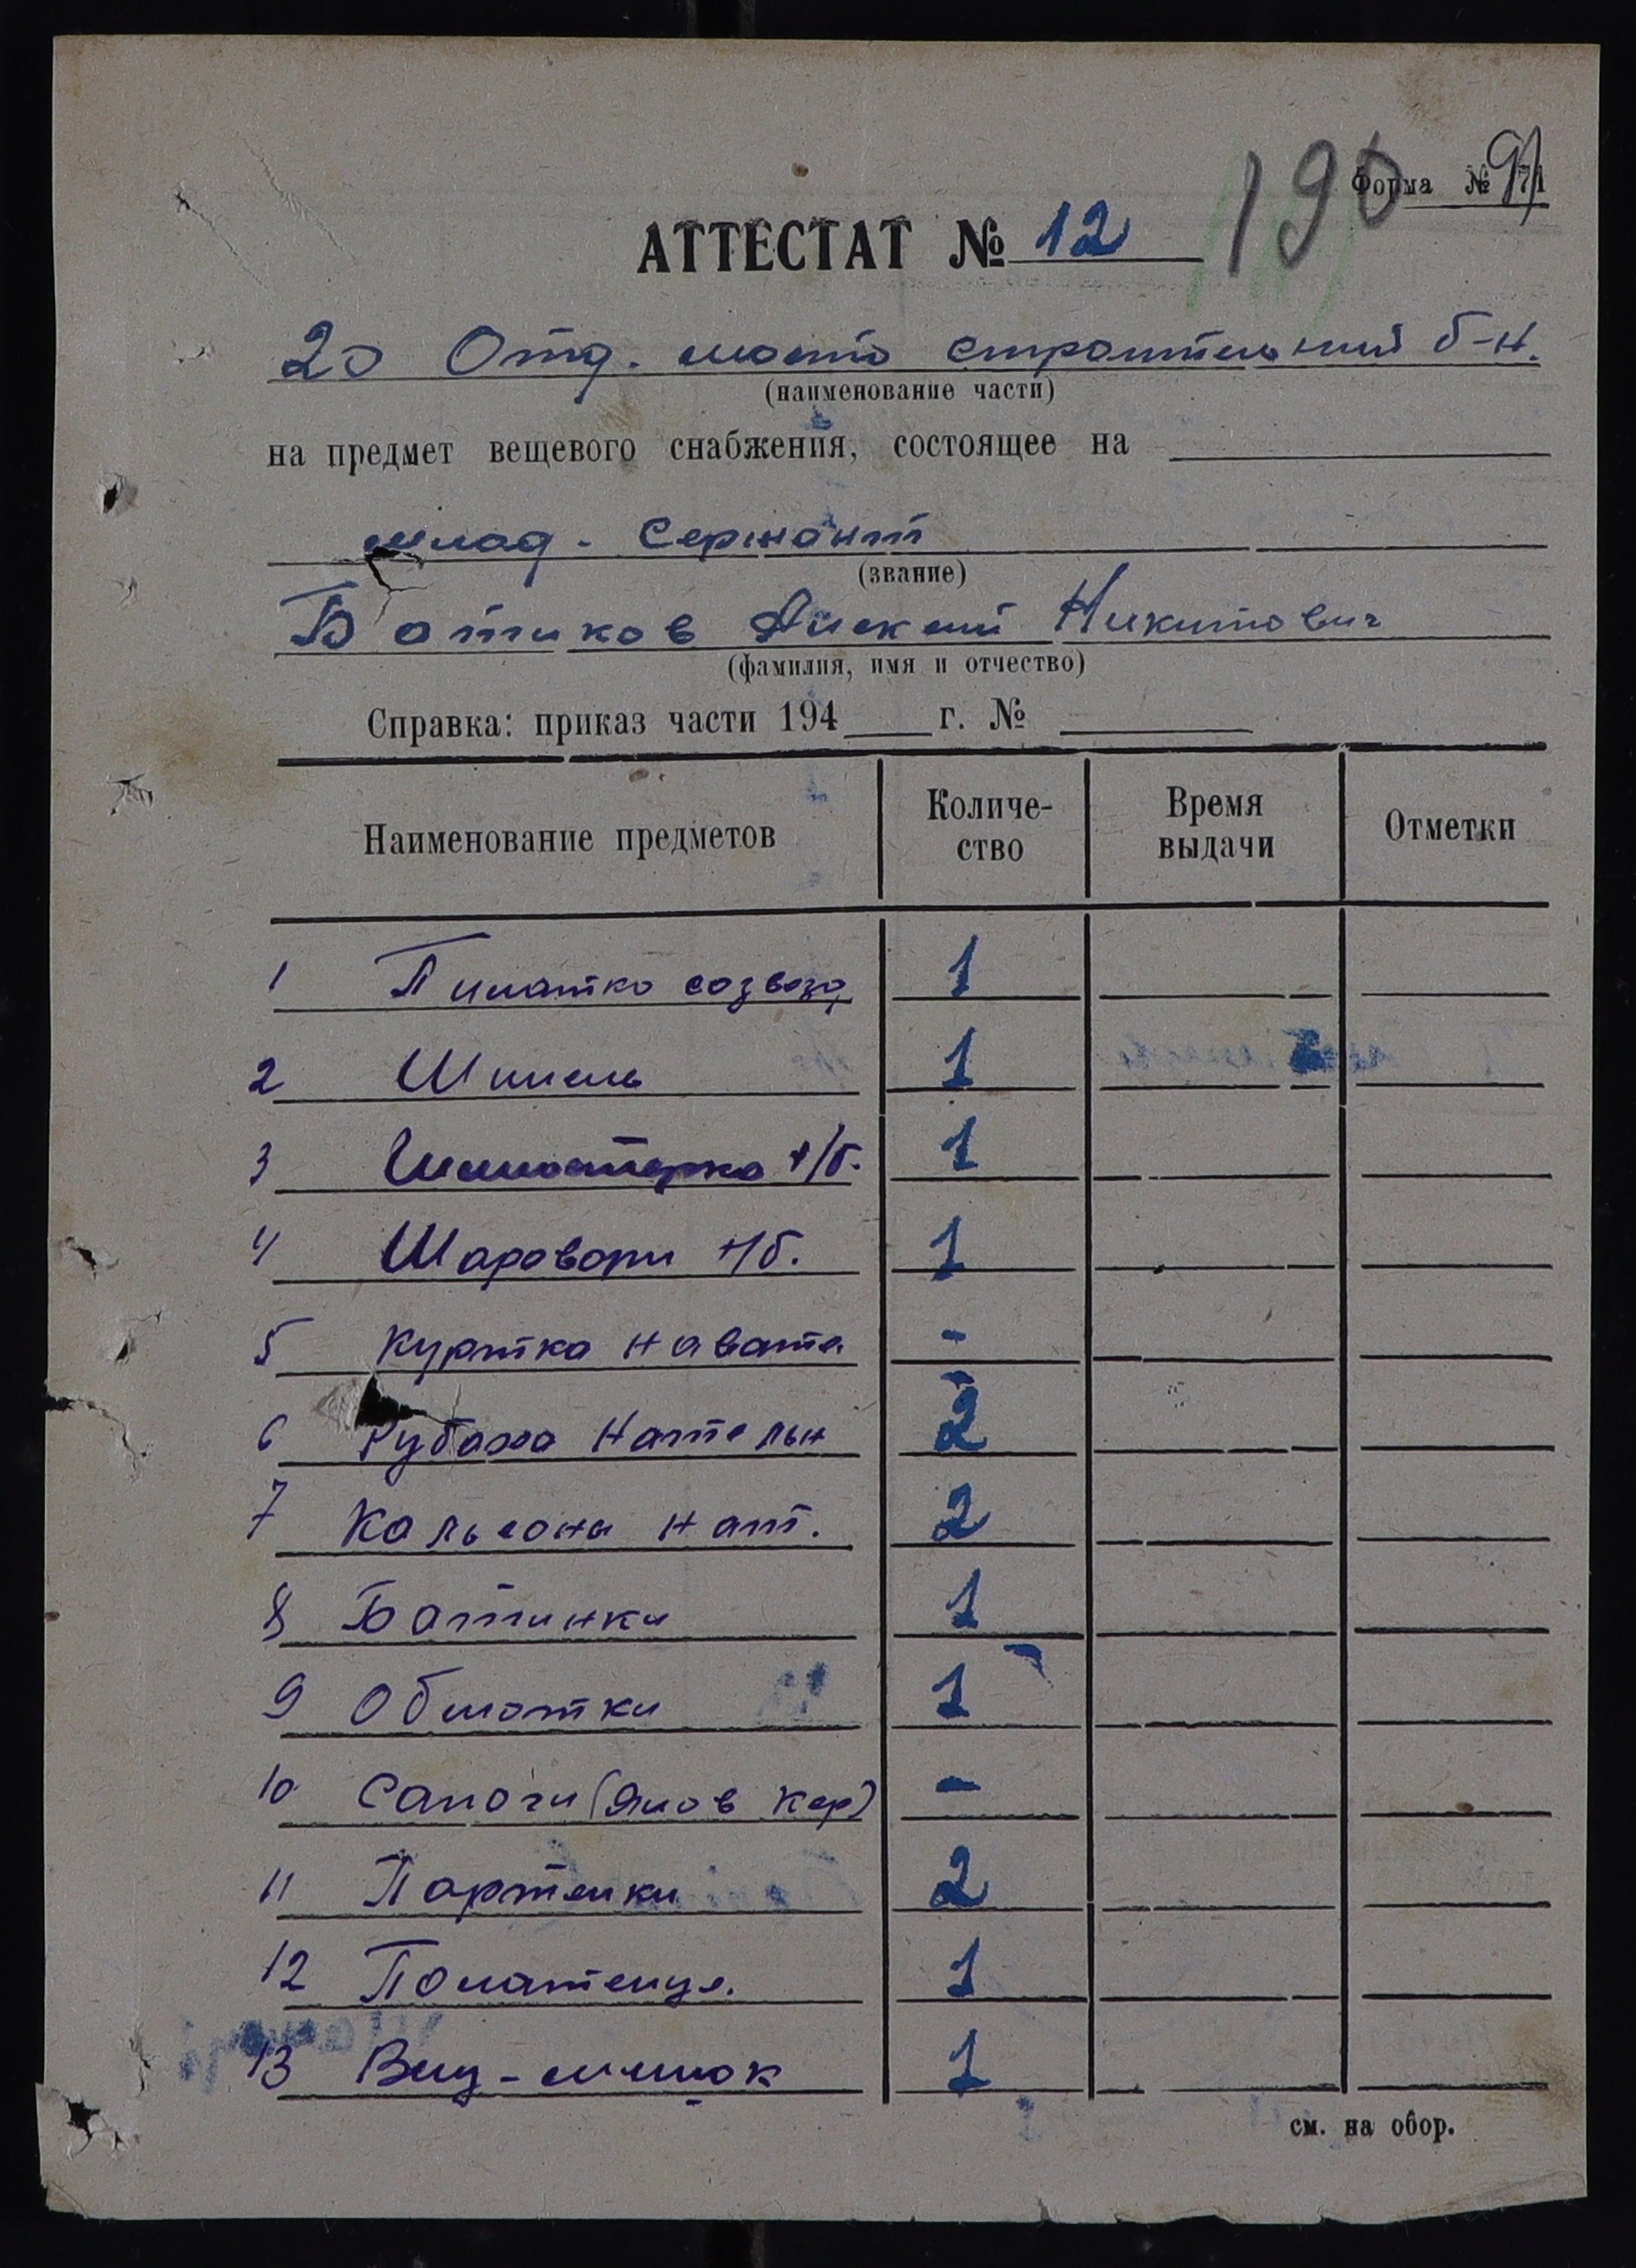 190
91
Форма №
АТТЕСТАТ № 12
20 Отд. мосто строительний б-н.
(наименование части)
на предмет вещевого снабжения, состоящее на
млад - Сержант
(звание)
Ботиков Алексей Никитович
(фамилия, имя и отчество)
Справка: приказ части 194 г. №
Наименование предметов Количе- ство Время выдачи Отметки
1 Пилотка со звезд 1
2 Шинель 1
3 Гимнастерка х/б. 1
4 Шаровари х/б. 1
5 Куртка на вате -
6 Рубаха Нательн 2
7 Кальсоны нат. 2
8 Ботинки 1
9 Обмотки 1
10 Сапоги ( кер) -
11 Портянки 2
12 Полотенце. 1
13 Вещ-мешок 1
см. на обор.